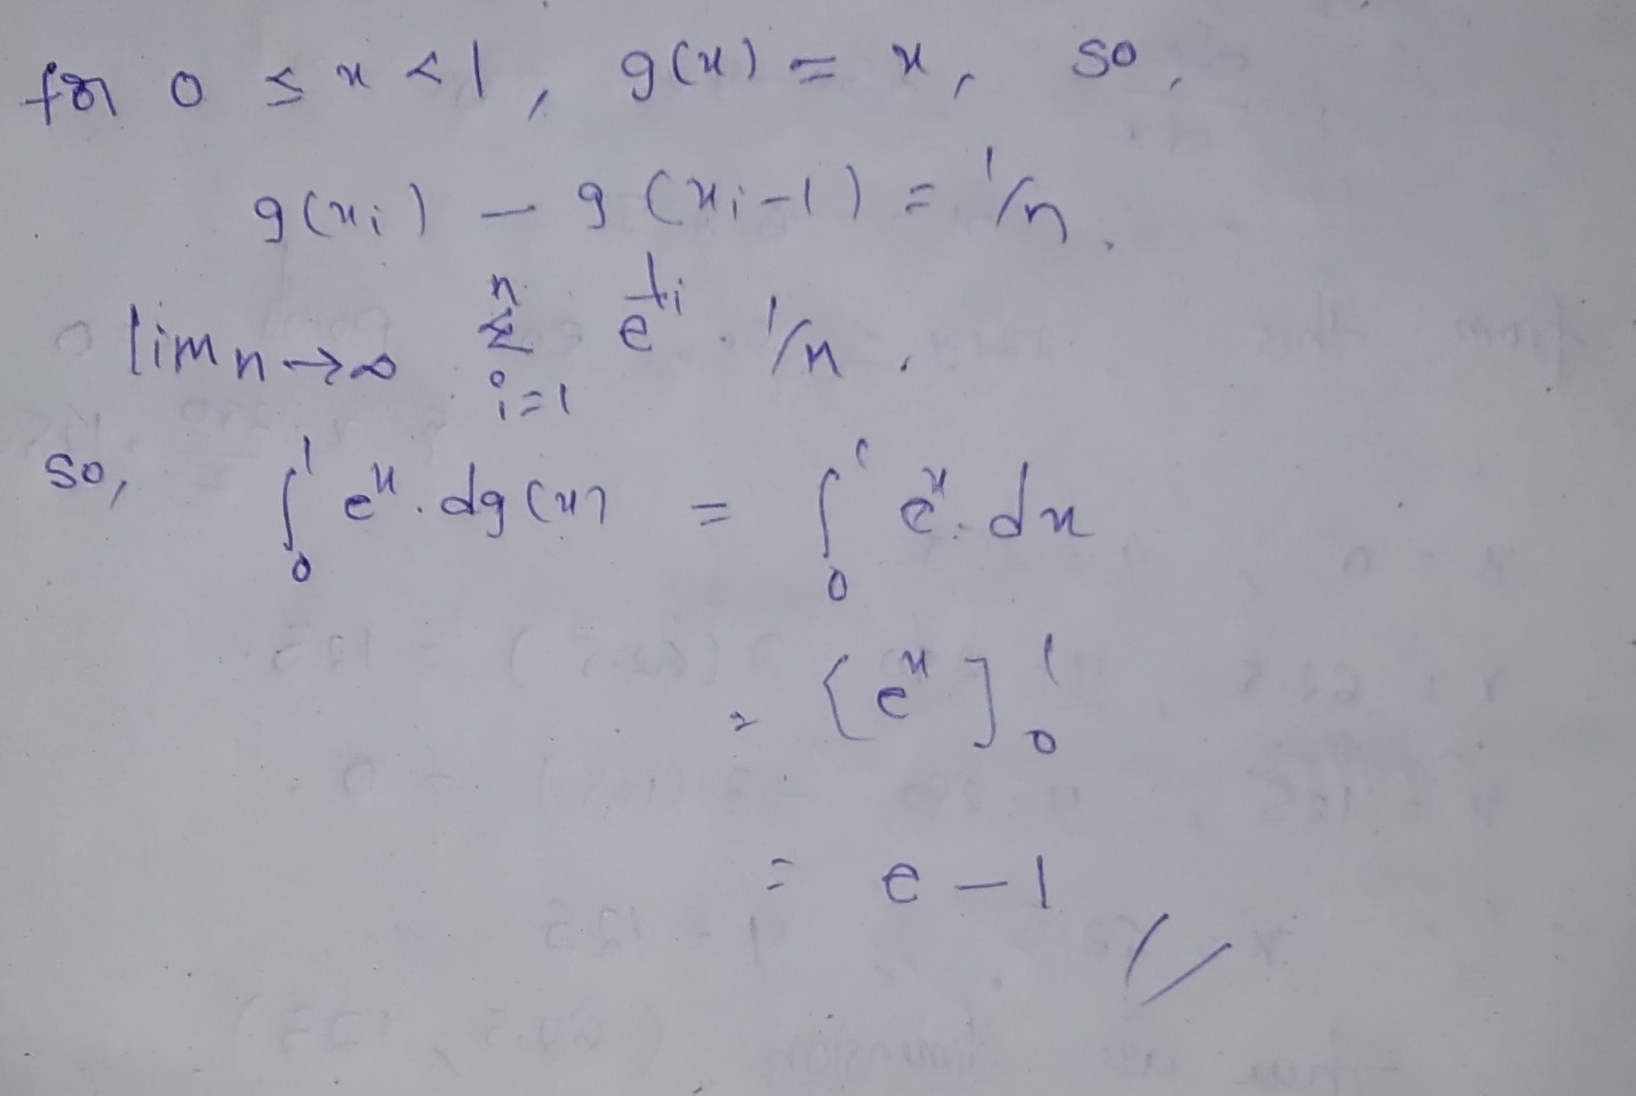 for 0 ≤ x < 1, g(x) = x, so,
g(xi) - g(xi-1) = 1/n.
lim n→∞ n Σ i=1 e^ti . 1/n.
so, ∫0^1 e^x . dg(x) = ∫0^1 e^x . dx
= [e^x]0^1
= e - 1 //